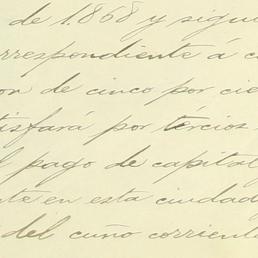 de 1.868 y sigu
orrespondiente á c
on de cinco por cie
tisfará por tércios
l pago de capital
nte en esta ciudad
del cuño corriente